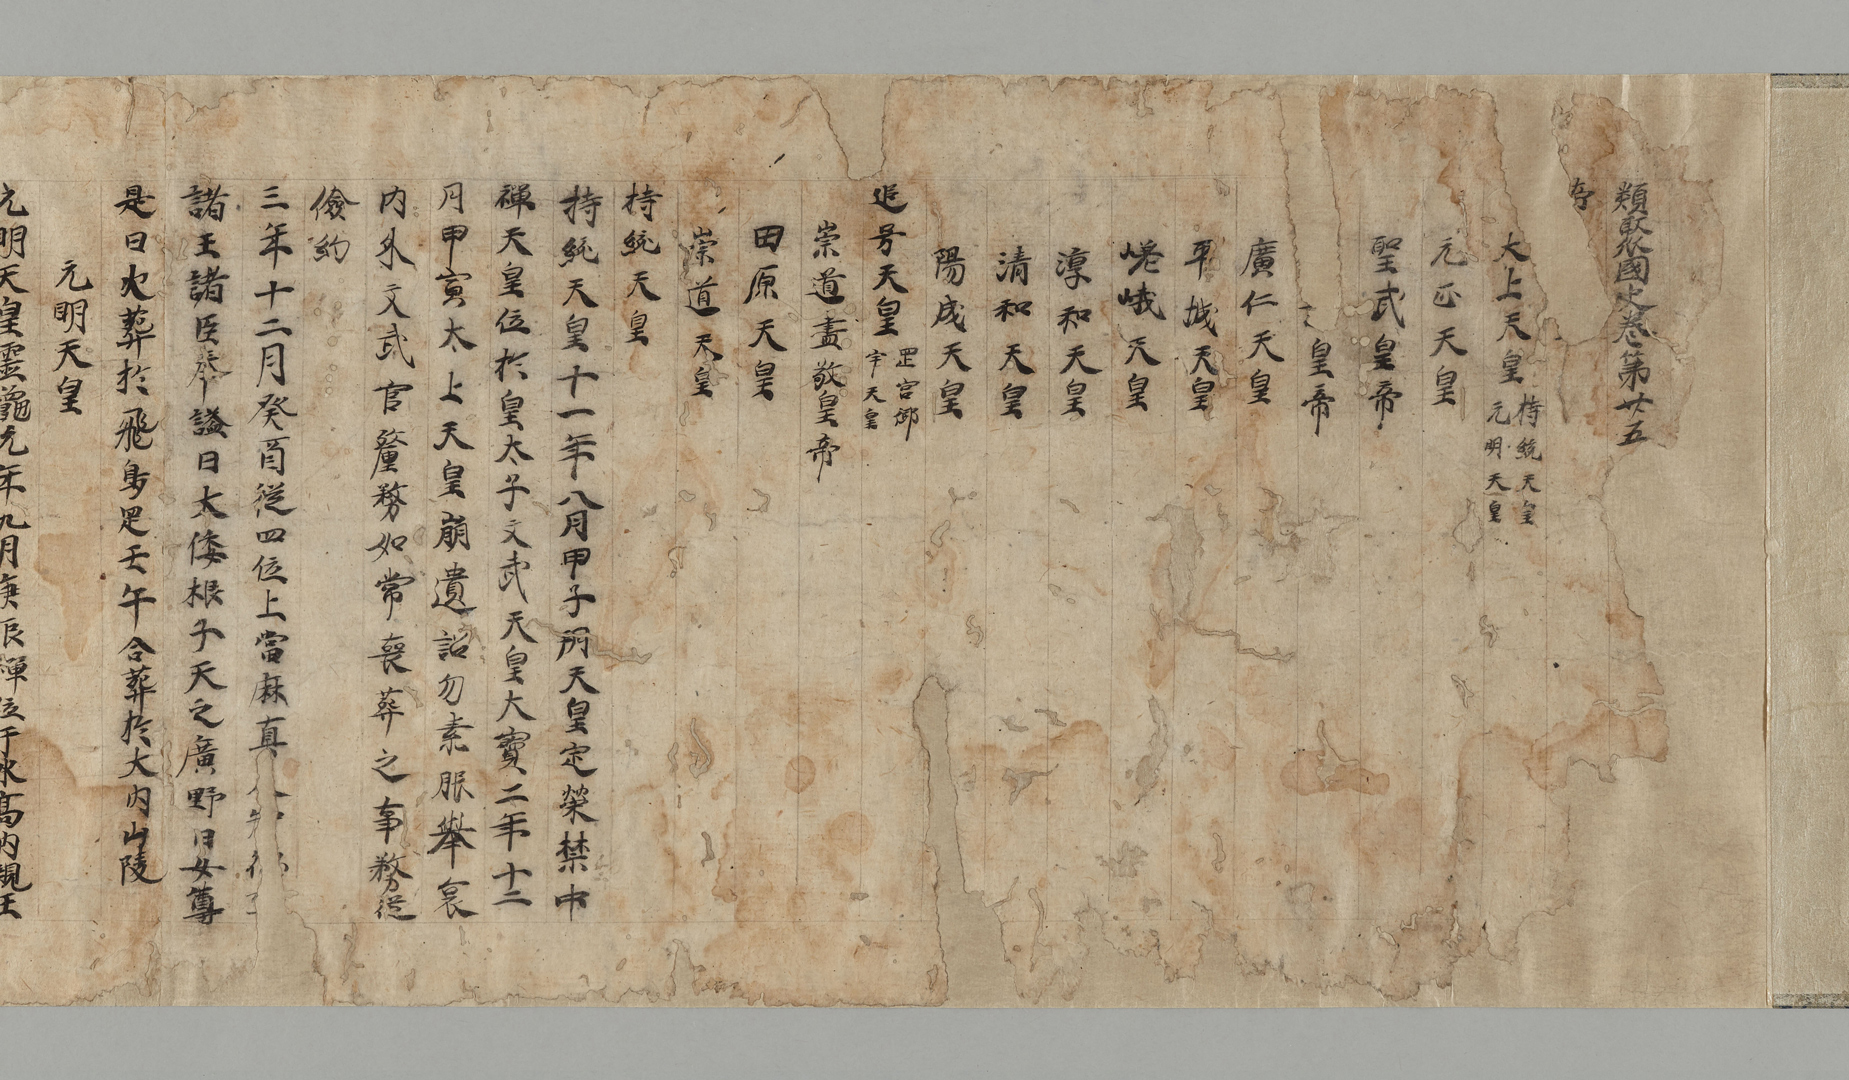 類聚國史巻第廿五
帝
太上天皇 持統天皇 元明天皇
元正天皇
聖武皇帝
皇帝
廣仁天皇
平城天皇
嵯峨天皇
淳和天皇
清和天皇
陽成天皇
追号天皇 岡宮御宇天皇
崇道盡敬皇帝
田原天皇
崇道天皇
持統天皇
持統天皇十一年八月甲子朔天皇定策禁中
禅天皇位於皇太子文武天皇大寶二年十二
月甲寅太上天皇崩遺詔勿素服舉哀
内外文武官釐務如常喪葬之事務従
儉約
三年十二月癸酉従四位上當麻真
諸王諸臣奉謚曰大倭根子天之廣野日女尊
是日火葬於飛鳥置壬午合葬於大内山陵
元明天皇
元明天皇霊龜元年九月庚辰禅位于氷高内親王